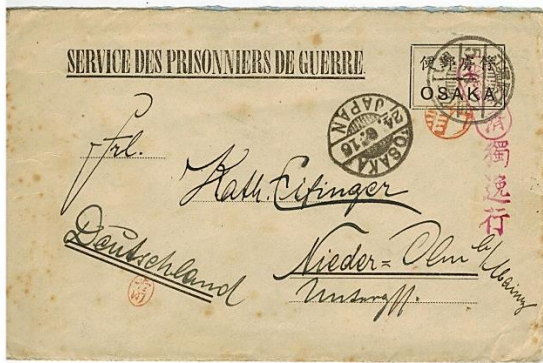 SERVICE DES PRISONNIERS DE GUERRE
便郵虜俘
OSAKA
OSAKA
JAPAN
獨逸行
Frl.
Kath. Eifinger
Deutschland
Nieder=Olm b/Mainz